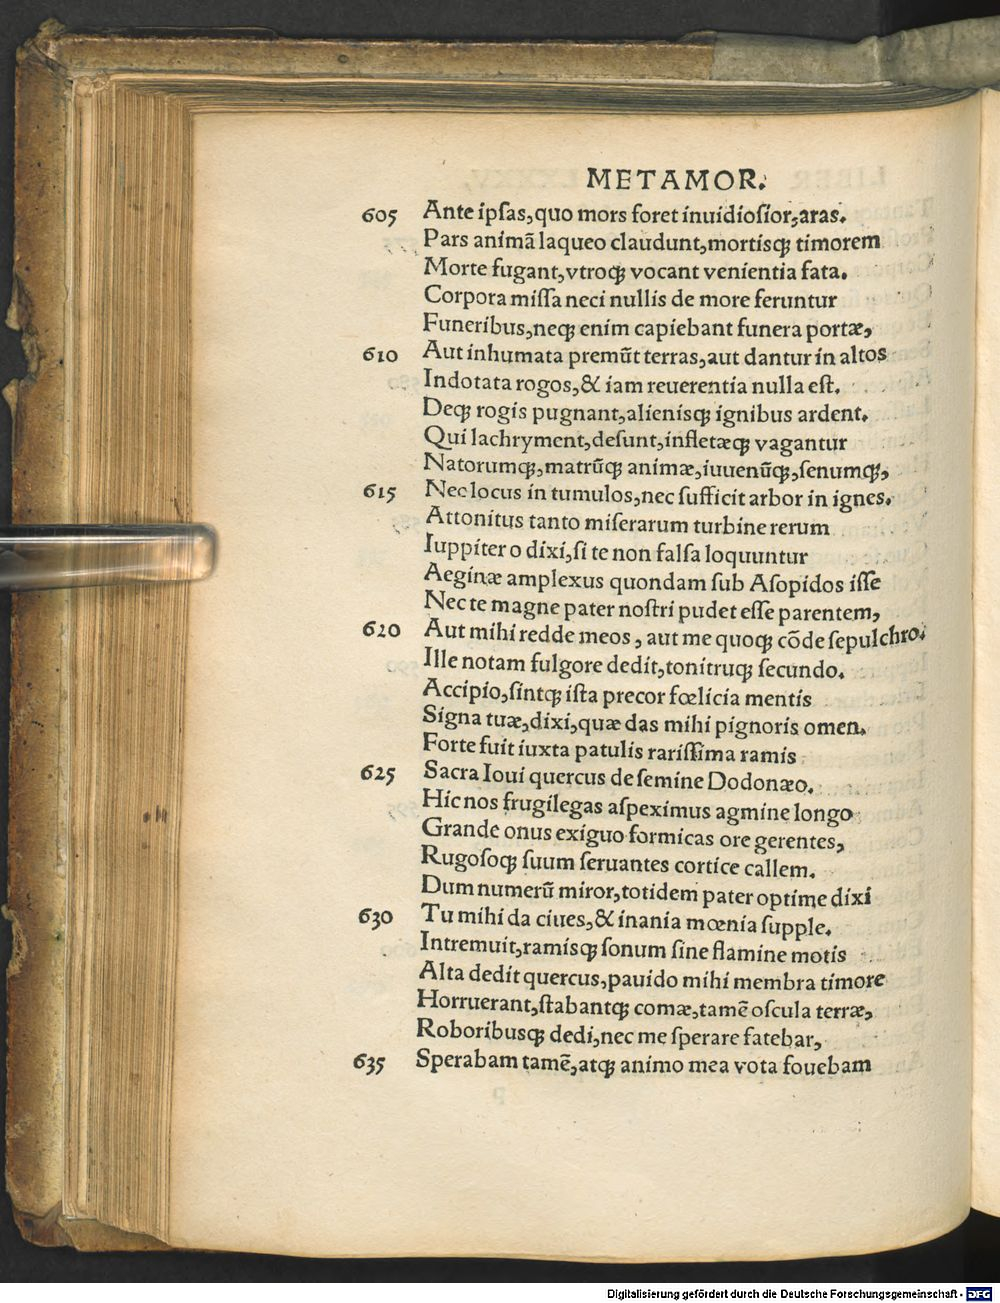 METAMOR.
605 Ante ipſas, quo mors foret inuidioſior, aras.
Pars animā laqueo claudunt, mortisqꝫ timorem
Morte fugant, vtroqꝫ vocant venientia fata.
Corpora miſſa neci nullis de more feruntur
Funeribus, neqꝫ enim capiebant funera portæ,
610 Aut inhumata premūt terras, aut dantur in altos
Indotata rogos, & iam reuerentia nulla eſt.
Deqꝫ rogis pugnant, alienisqꝫ ignibus ardent.
Qui lachryment, deſunt, infletæqꝫ vagantur
Natorumqꝫ, matrūqꝫ animæ, iuuenūqꝫ, ſenumqꝫ,
615 Nec locus in tumulos, nec ſufficit arbor in ignes.
Attonitus tanto miſerarum turbine rerum
Iuppiter o dixi, ſi te non falſa loquuntur
Aeginæ amplexus quondam ſub Aſopidos iſſe
Nec te magne pater noſtri pudet eſſe parentem,
620 Aut mihi redde meos, aut me quoqꝫ cōde ſepulchro.
Ille notam fulgore dedit, tonitruqꝫ ſecundo.
Accipio, ſintqꝫ iſta precor fœlicia mentis
Signa tuæ, dixi, quæ das mihi pignoris omen.
Forte fuit iuxta patulis rariſſima ramis
625 Sacra Ioui quercus de ſemine Dodonæo.
Hic nos frugilegas aſpeximus agmine longo
Grande onus exiguo formicas ore gerentes,
Rugoſoqꝫ ſuum ſeruantes cortice callem.
Dum numerū miror, totidem pater optime dixi
630 Tu mihi da ciues, & inania mœnia ſupple.
Intremuit, ramisqꝫ ſonum ſine flamine motis
Alta dedit quercus, pauido mihi membra timore
Horruerant, ſtabantqꝫ comæ, tamē oſcula terræ,
Roboribusqꝫ dedi, nec me ſperare fatebar,
635 Sperabam tamē, atqꝫ animo mea vota fouebam
Digitalisierung gefördert durch die Deutsche Forschungsgemeinschaft - DFG